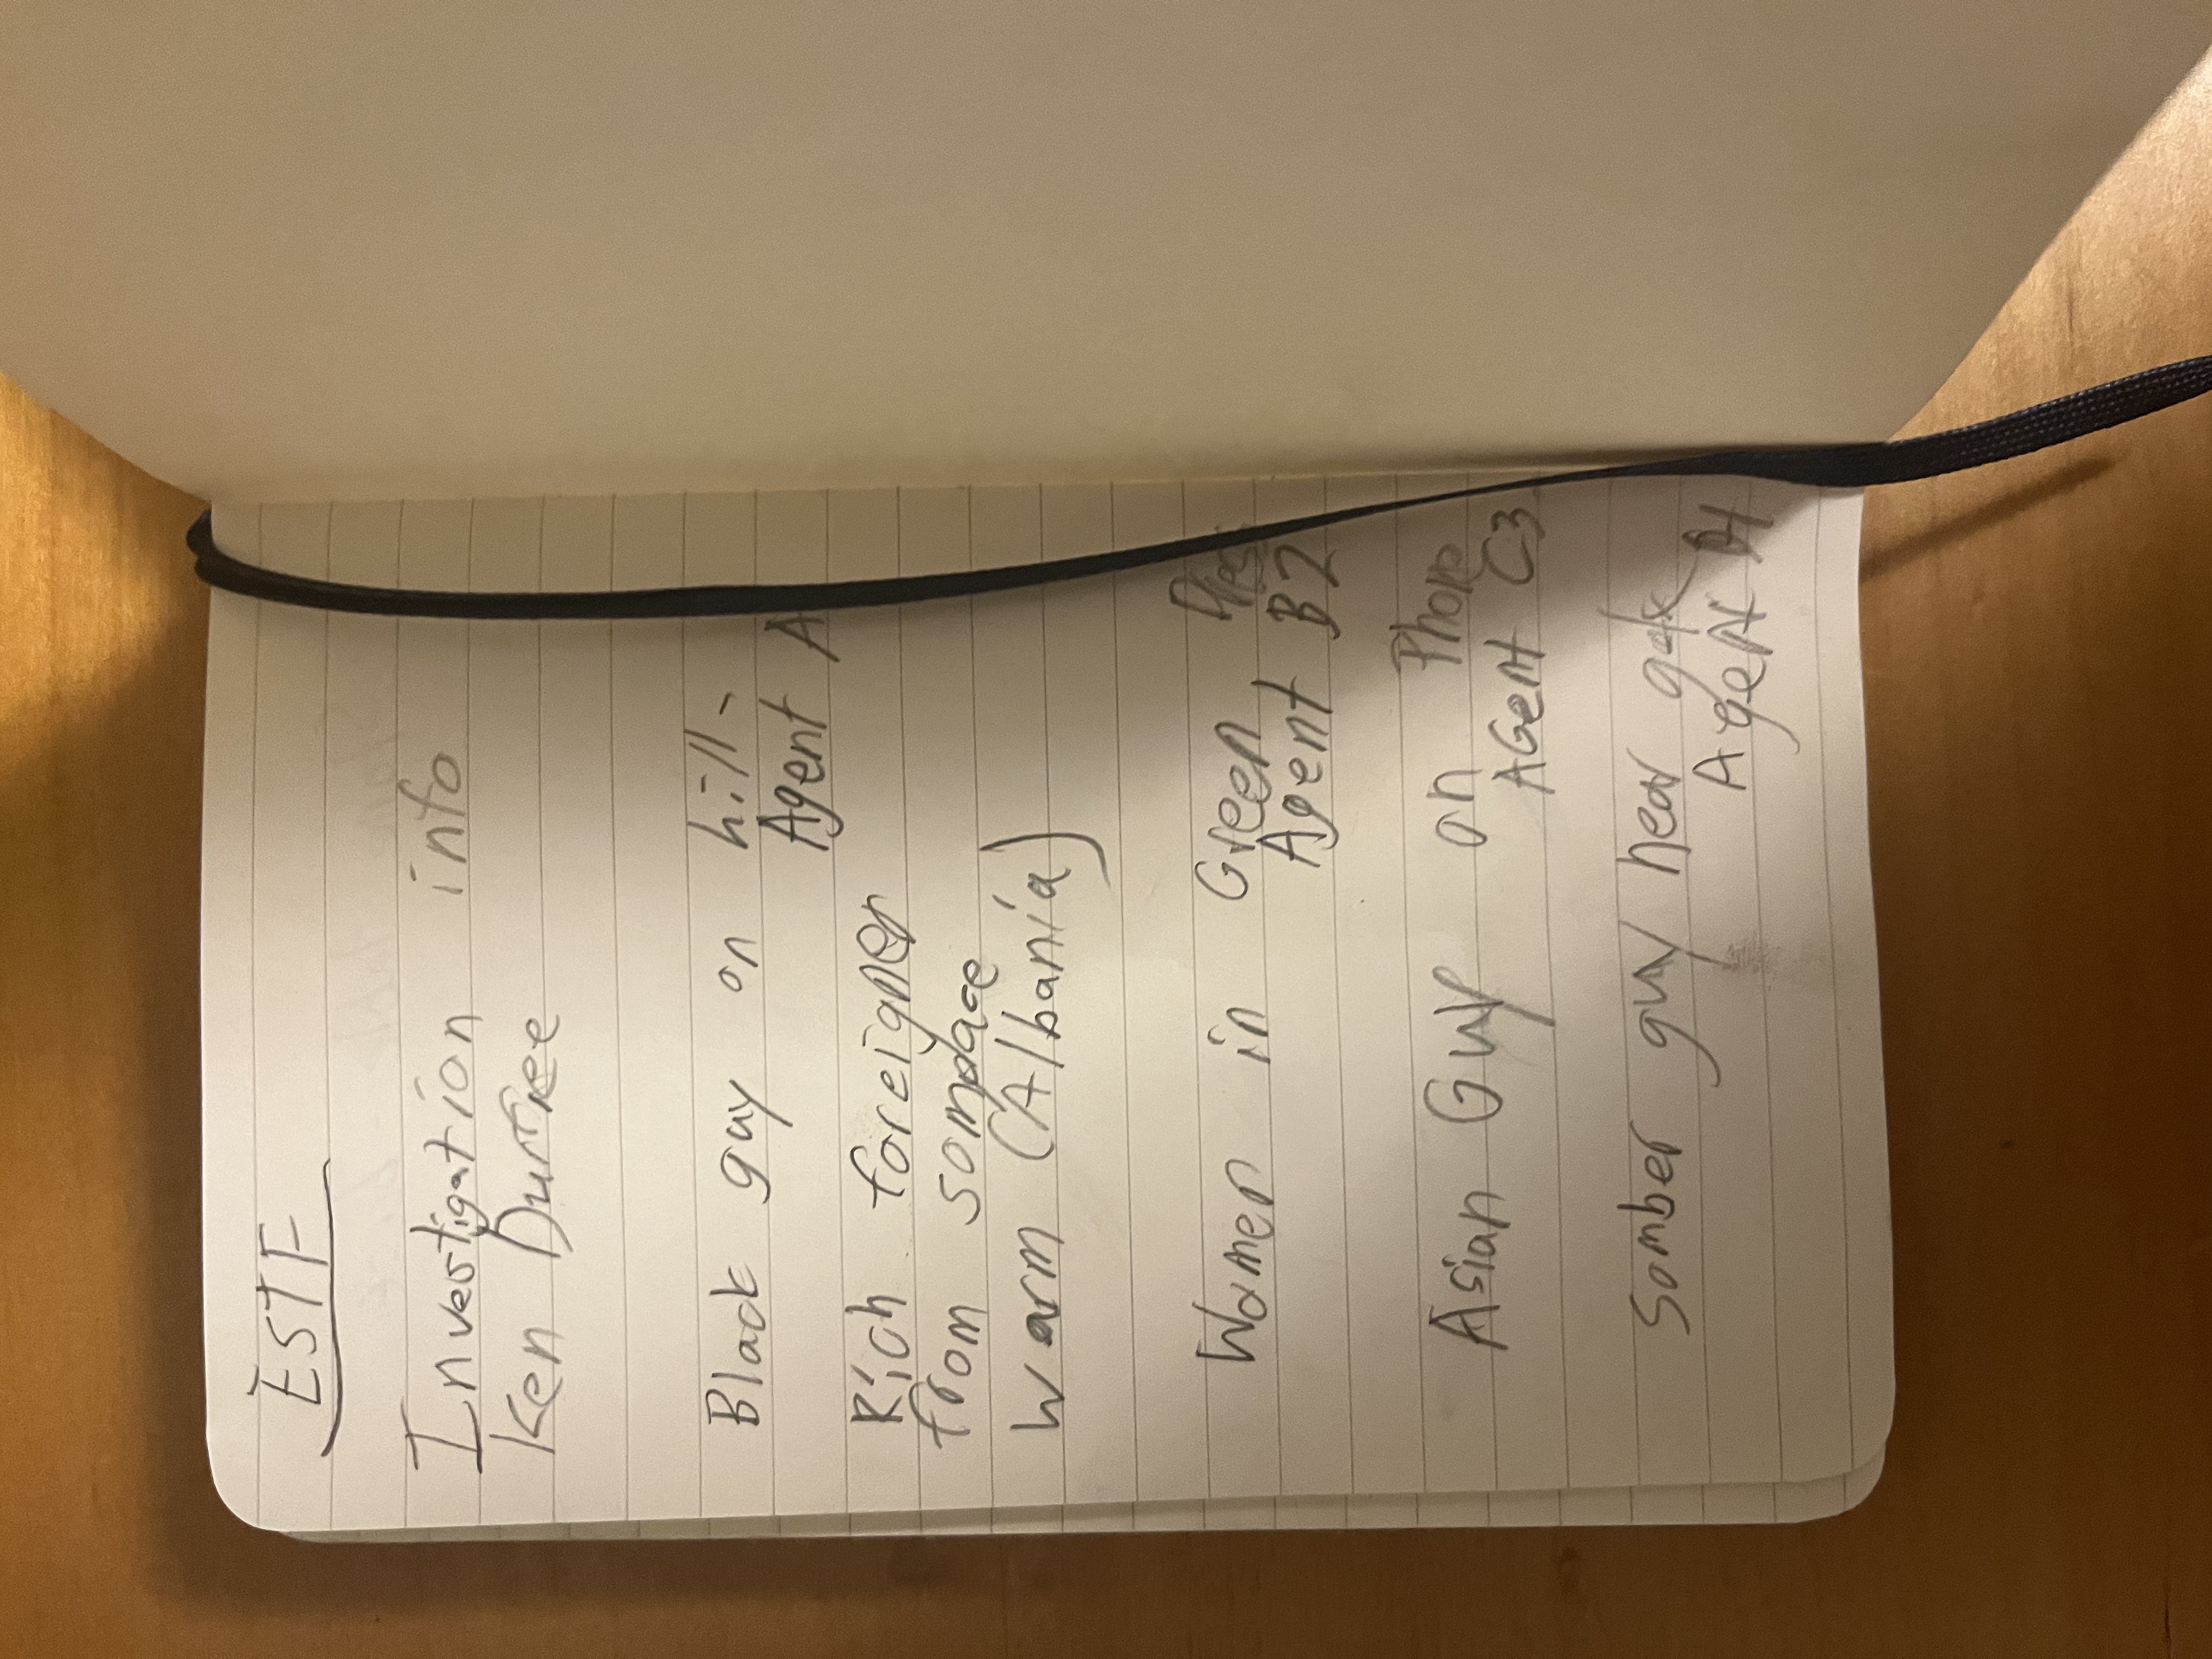 ESTF
Investigation info
Ken Durfree
Black guy on hill-
Agent A
Rich foreigner
from somplace
Warm (Albania)
Women in Green Dress
Agent B2
Asian Guy on Phone
AGent C3
somber guy near gate
Agent